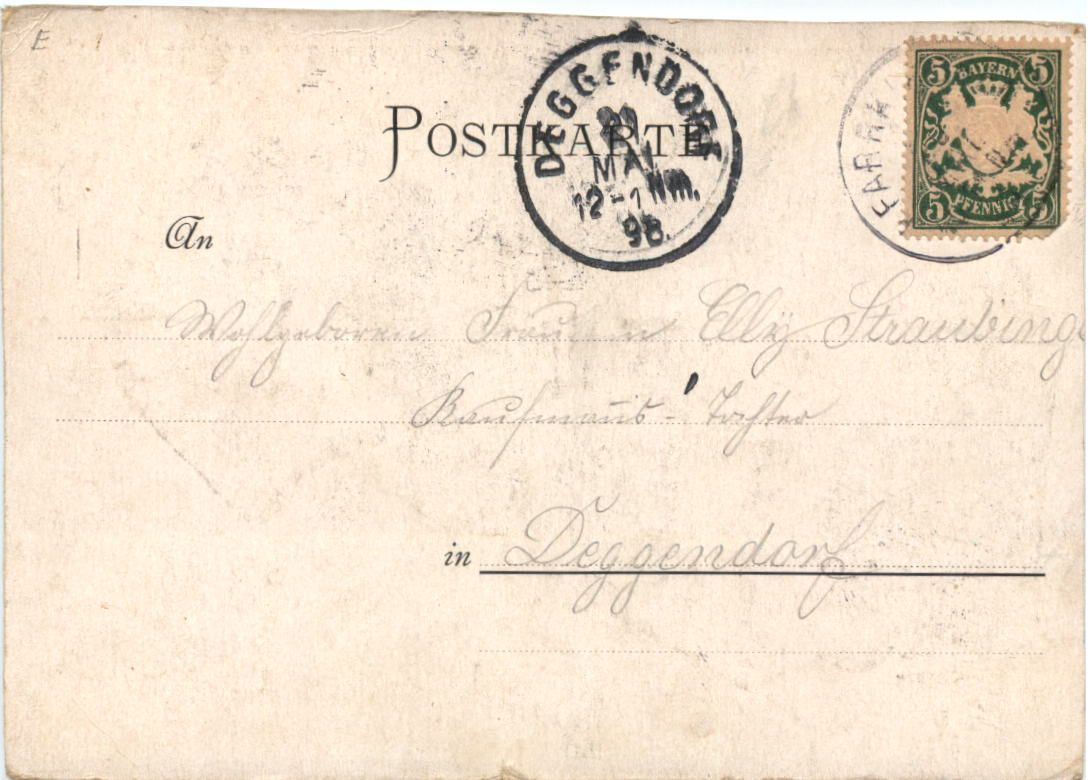 E
POSTKARTE
DEGGENDORF
MAI
12-1 Nm.
98.
FARRN
5 BAYERN 5
5 PFENNIG 5
An
Wohlgeboren Fräulein Elly Straubing
Kaufmanns-Tochter
in Deggendorf